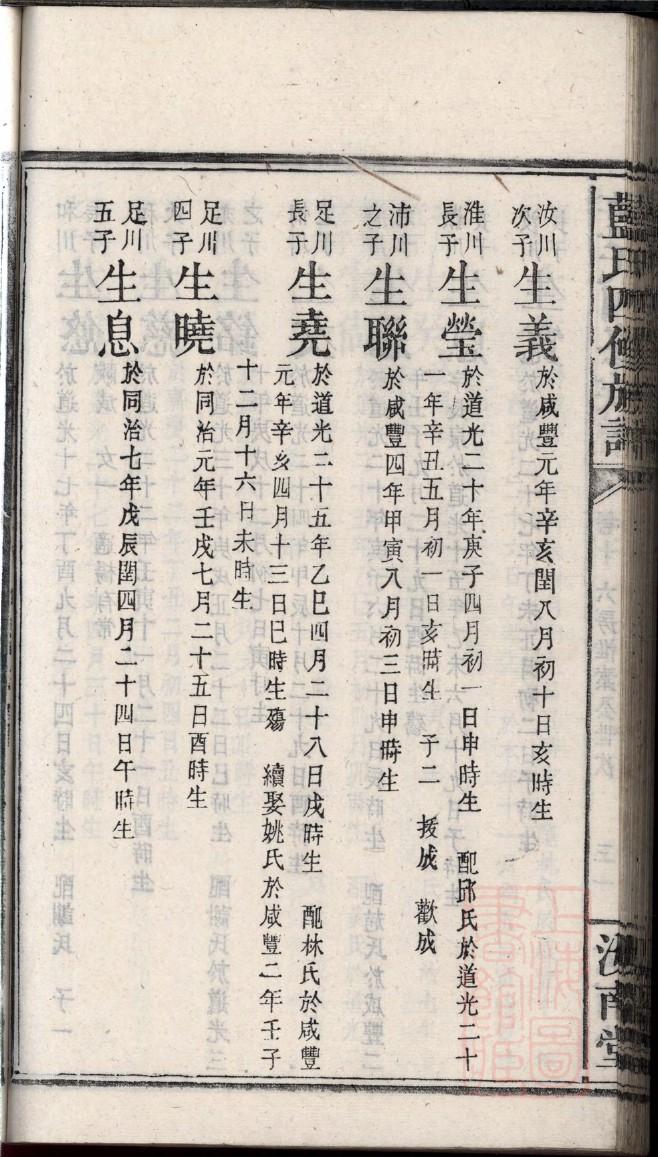 藍氏四修族譜
卷十 六房惟案公世次 三一
汝南堂
汝川次子 生義 於咸豐元年辛亥閏八月初十日亥時生
淮川長子 生瑩 於道光二十年庚子四月初一日申時生 配邱氏於道光二十
一年辛丑五月初一日亥時生 子二 援成 歡成
沛川之子 生聯 於咸豐四年甲寅八月初三日申時生
足川長子 生堯 於道光二十五年乙巳四月二十八日戌時生 配林氏於咸豐
元年辛亥四月十三日巳時生殤 續娶姚氏於咸豐二年壬子
十二月十六日未時生
足川四子 生曉 於同治元年壬戌七月二十五日酉時生
足川五子 生息 於同治七年戊辰閏四月二十四日午時生